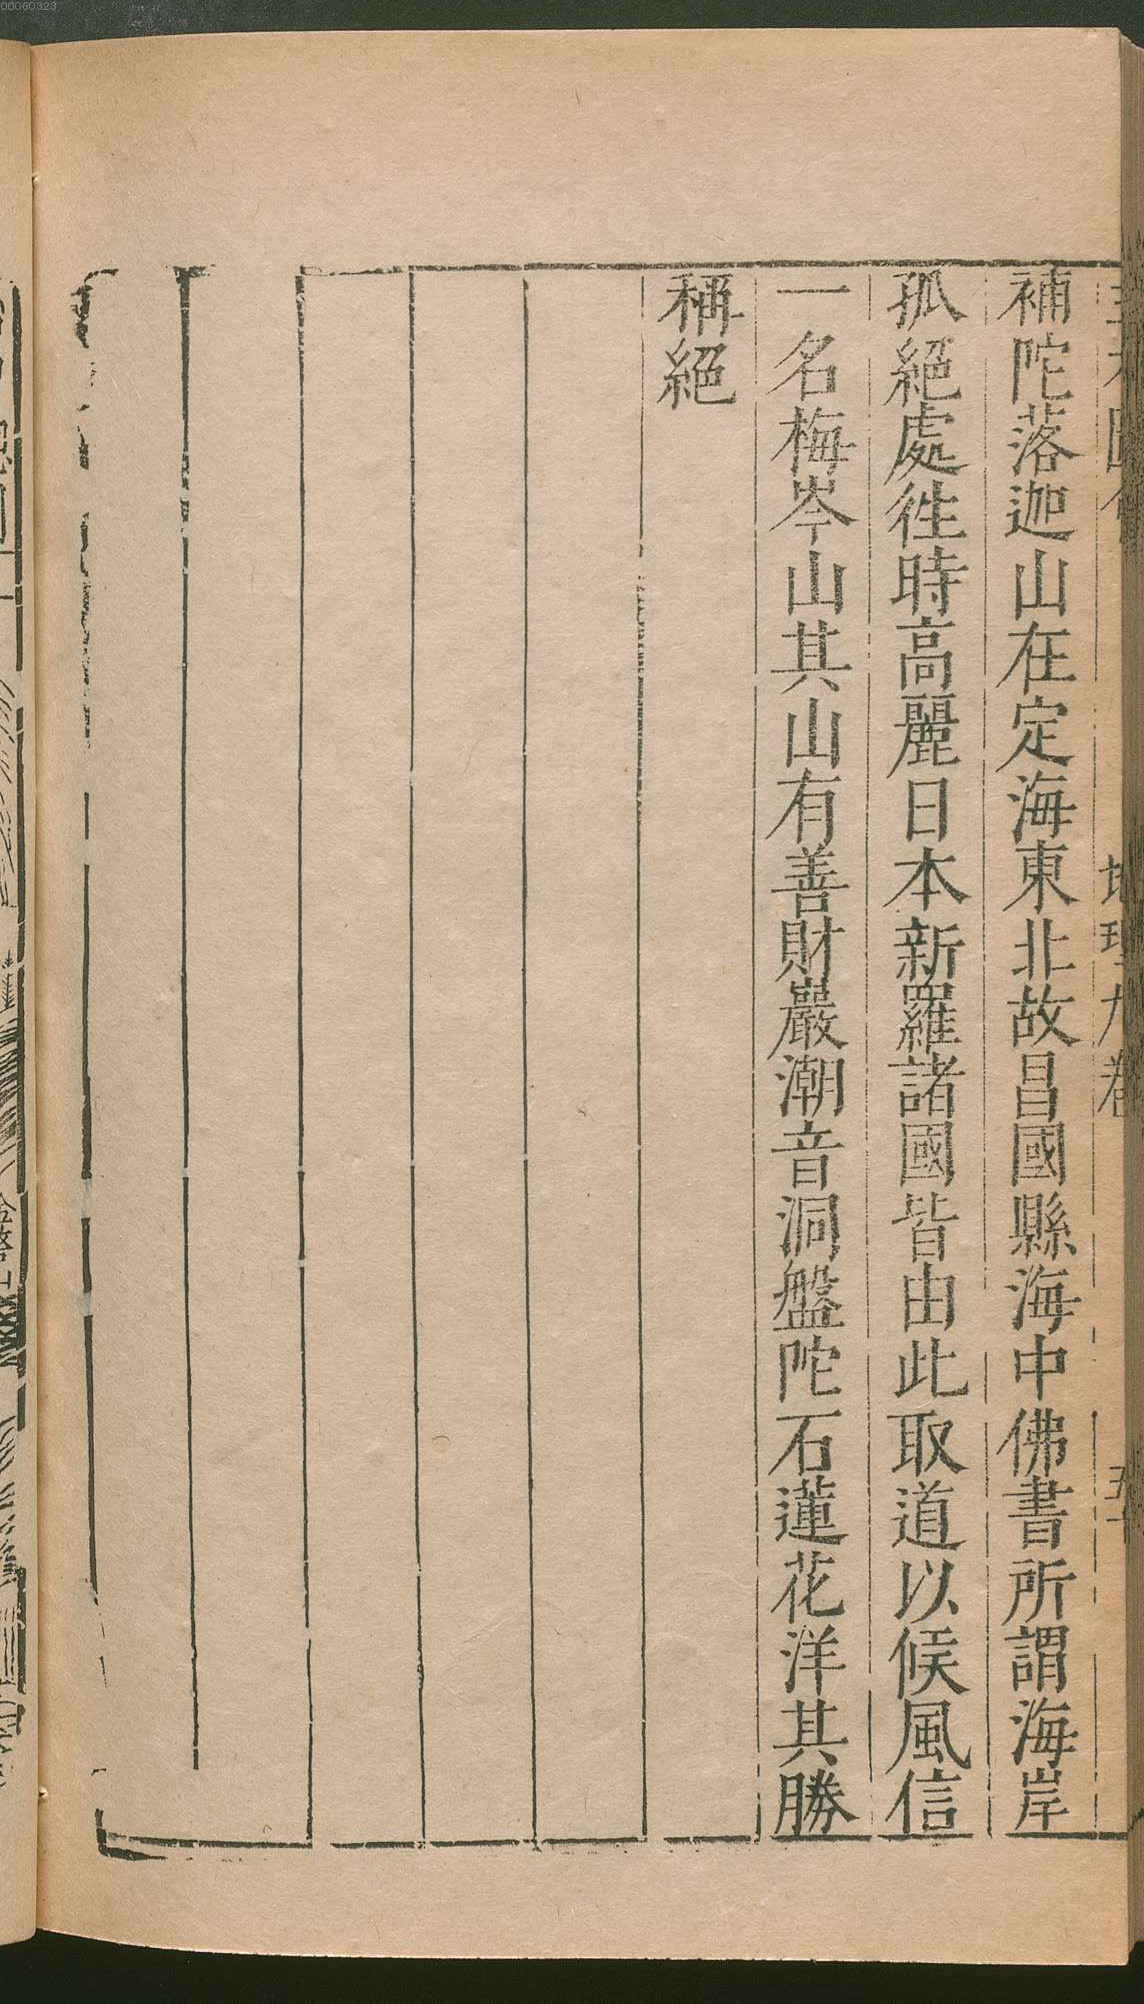 00060323
地理九卷
補陀落迦山在定海東北故昌國縣海中佛書所謂海岸
孤絕處徃時高麗日本新羅諸國皆由此取道以候風信
一名梅岑山其山有善財巖潮音洞盤陀石蓮花洋其勝
稱絕